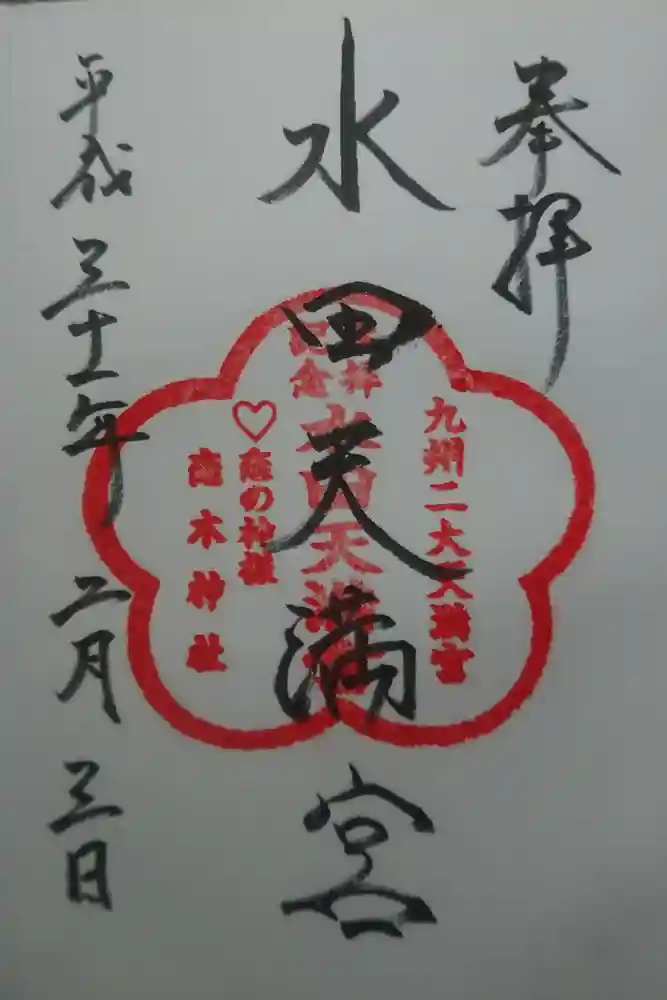 奉拝
水田天満宮
平成三十一年 二月三日
九州二大天満宮
参拝
記念
水田天満宮
恋の神様
恋木神社